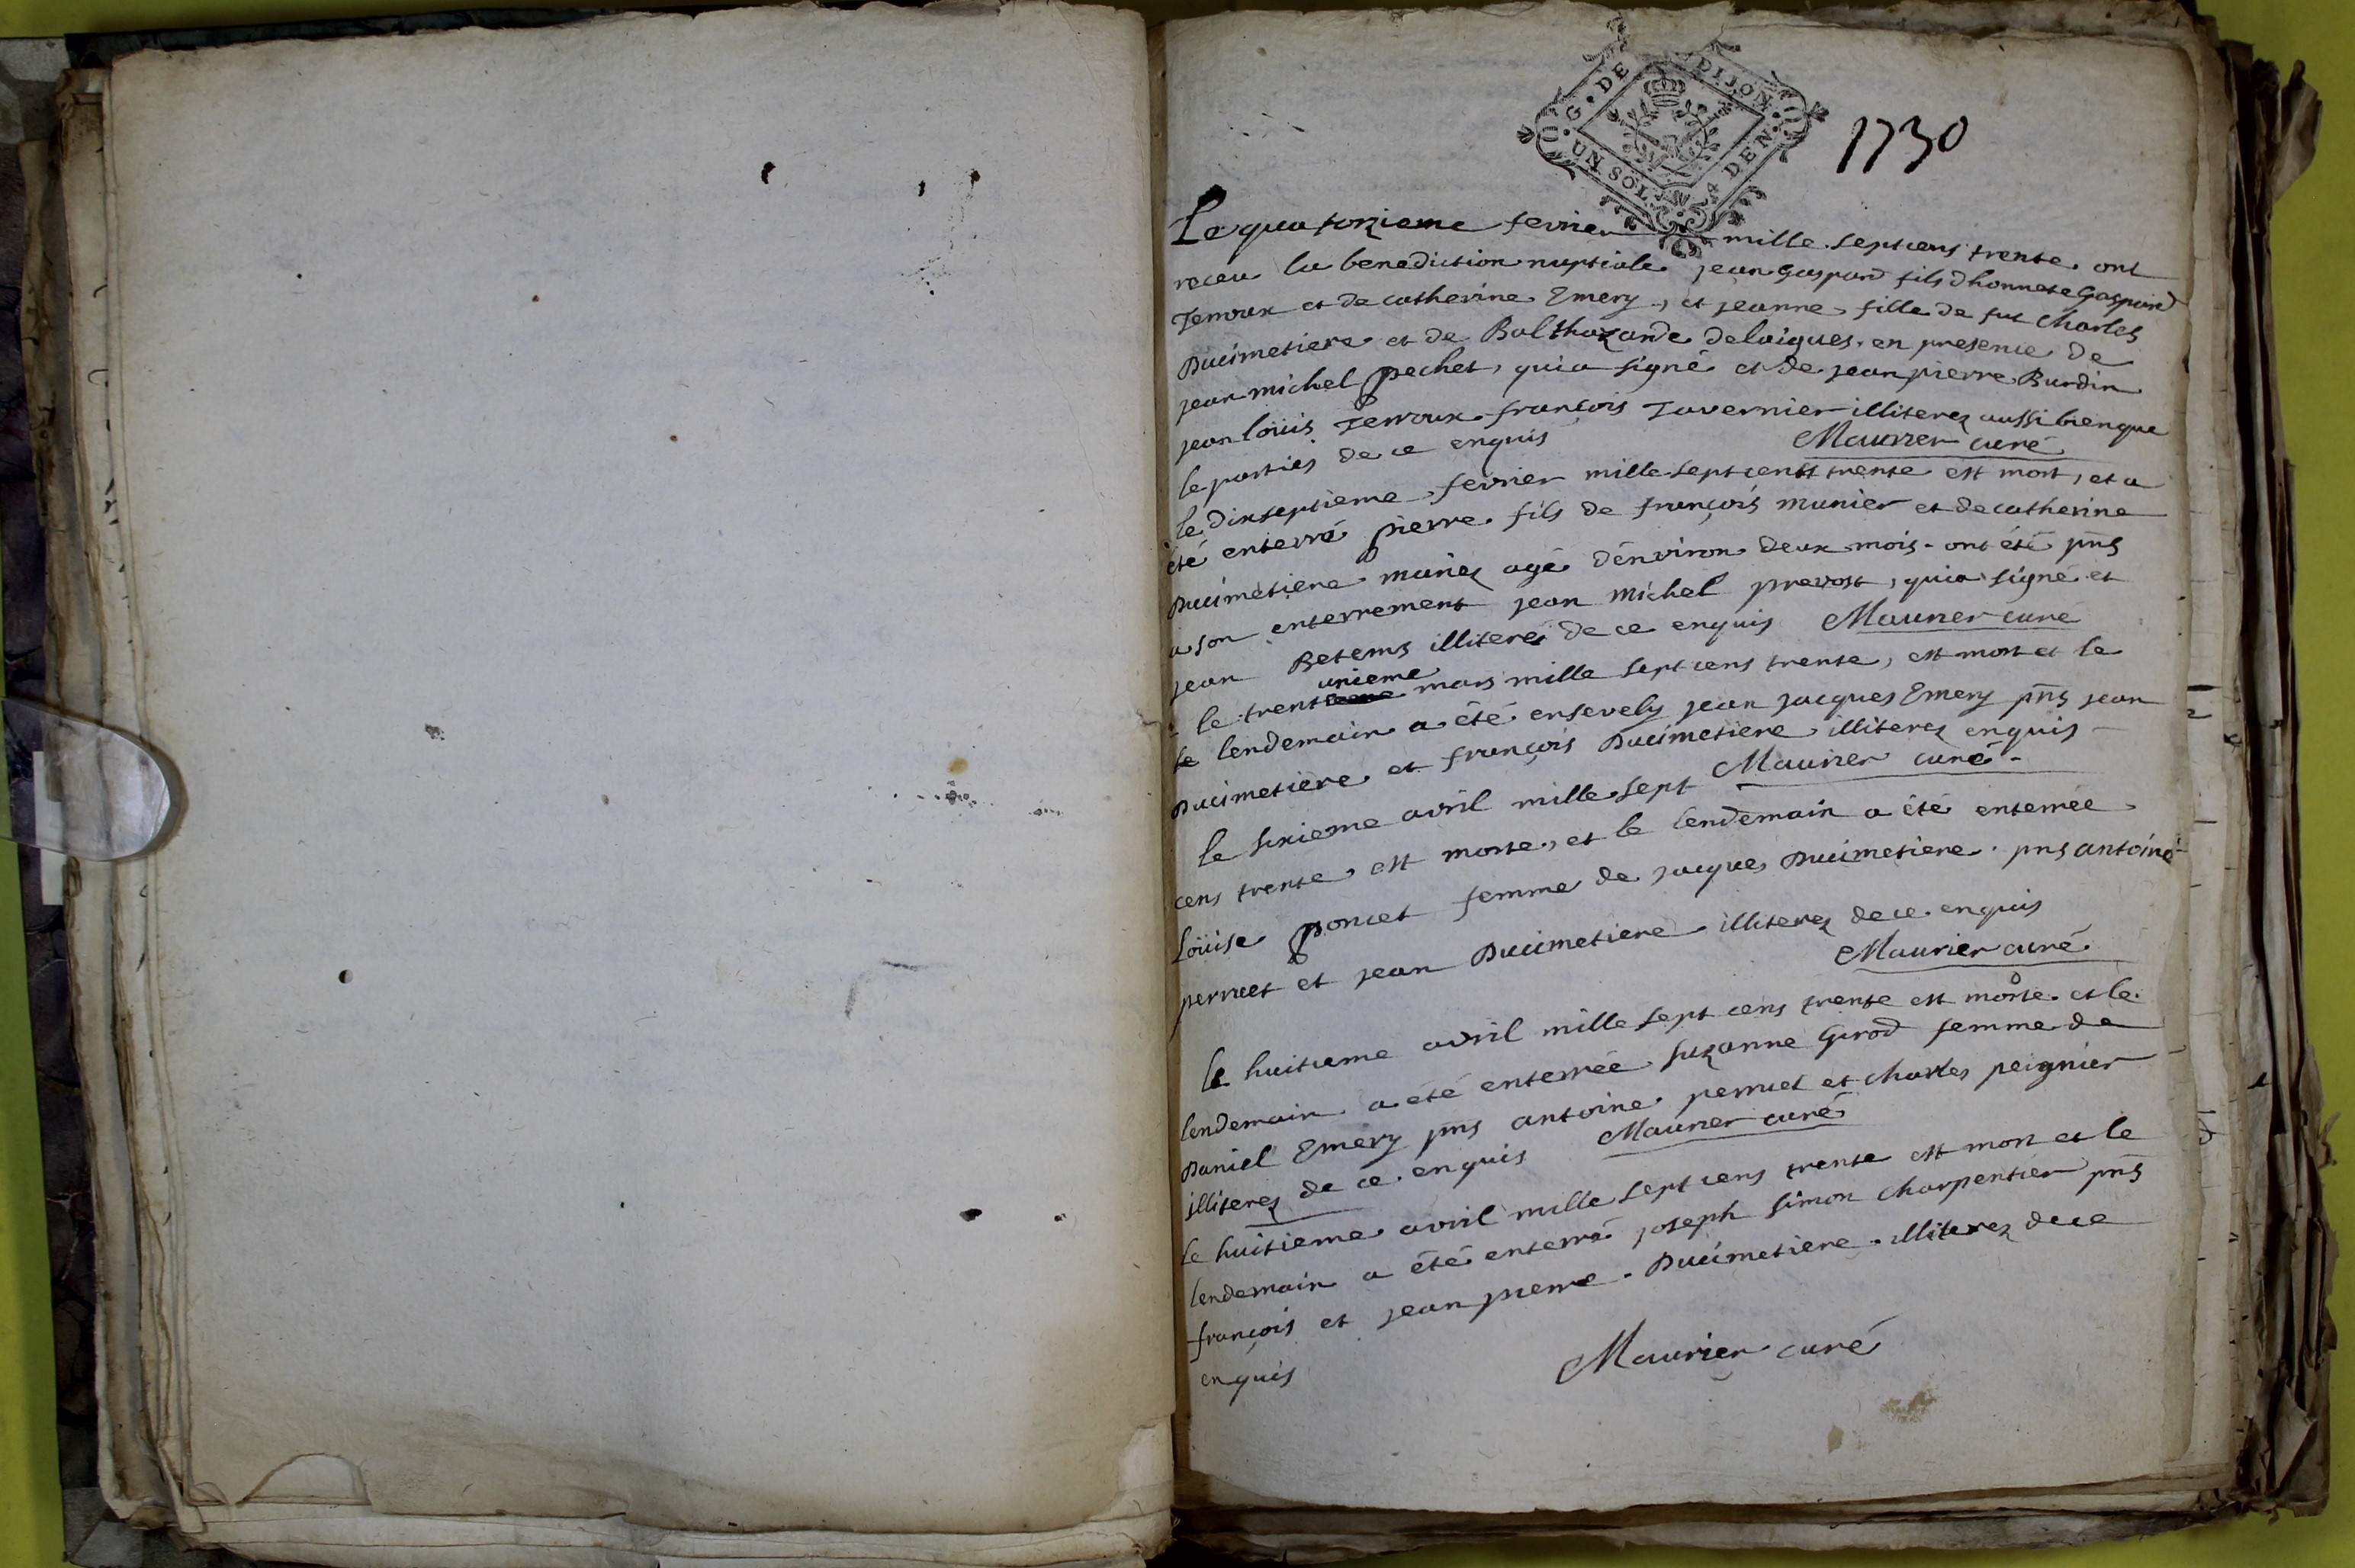 G. DE DIJON
UN SOL. 4 DEN.
1730
Le quatorzieme fevrier mille septcens trente ont
receu la benediction nuptiale jean gaspard fils dhonnete Gaspard
Terroux et de catherine Emery, et jeanne fille de fut Charles
Ducimetiere et de Balthazarde delaigues. en presence de
jean michel pechet, qui a signé et de jean pierre Burdin
jean loüis Terroux françois Tavernier illiterez aussi bien que
le parties de ce enquis Maurier curé
le dixseptieme fevrier mille sept cents trente est mort, et a
été enterré pierre fils de françois munier et de catherine
Ducimetiere mariez agé d'énviron deux mois. ont été pñs
a son enterrement jean michel prevost, qui a signé et
jean Betems illiteré de ce enquis Maurier curé
unieme
le trent mars mille sept cens trente, est mort et le
le lendemain a été ensevely jean jacques Emery pñs jean
Ducimetiere et françois Ducimetiere illiterez enquis
Maurier curé
le sixieme avril mille sept
cens trente est morte, et le lendemain a été enterrée
Loüise poncet femme de jacques Ducimetiere. pns antoine
perruet et jean Ducimetiere illiterez de ce enquis
Maurier curé
le huitieme avril mille sept cens trente est morte et le
lendemain a été enterrée suzanne Girod femme de
Daniel Emery pns antoine perruet et charles peignier
illiterez de ce enquis Maurier curé
le huitieme avril mille sept cens trente est mort et le
lendemain a été enterré joseph simon charpentier pñs
françois et jean pierre Ducimetiere illiterez de ce
enquis Maurier curé